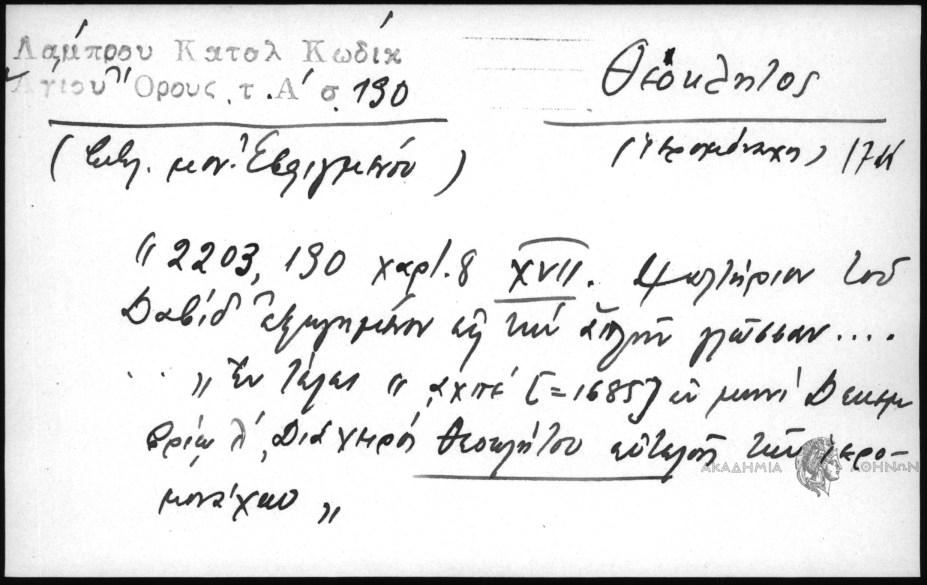 Λάμπρου Κατολ Κωδικ
Ἁγίου Ὄρους τ. Α΄ σ. 190
Θεόκλητος
(Βιβλ. μον. Ἐσφιγμένου)
(ἱερομόναχος) 17
"2203, 190 χαρτ. 8 XVII. Ψαλτήριον τοῦ
Δαβίδ ἐξηγημένον εἰς τὴν ἁπλῆν γλῶσσαν....
.. „ Ἐν τέλει " ͵αχπέ [=1685] ἐν μηνὶ Δεκεμ
βρίῳ λ΄, Διὰ χειρός Θεοκλήτου εὐτελοῦς τῶν ἱερο-
μονάχων „
ΑΚΑΔΗΜΙΑ ΑΘΗΝΩΝ